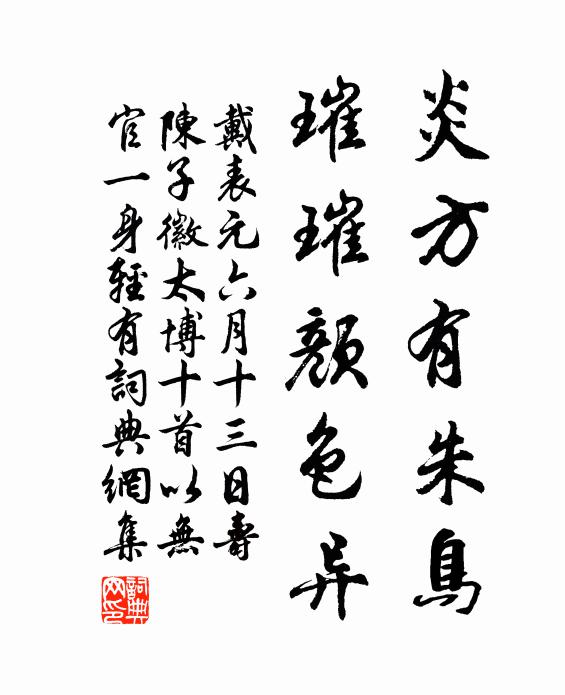 炎方有朱鳥
璀璀顏色异
戴表元六月十三日壽
陳子徽太博十首以無
官一身輕有詞典網集
詞典網印